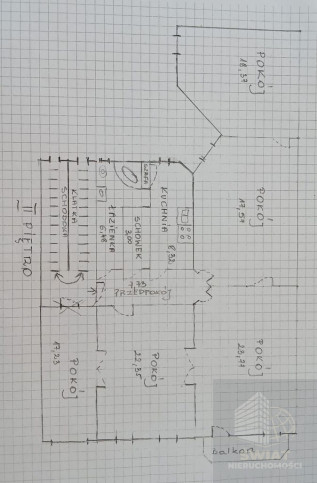 POKÓJ
18,37
POKÓJ
17,57
KUCHNIA
8,32
SCHOWEK
3,00
ŁAZIENKA
6,48
KLATKA
SCHODOWA
II PIĘTRO
7,73
PRZEDPOKÓJ
POKÓJ
22,35
POKÓJ
POKÓJ
balkon
ŚWIAT
NIERUCHOMOŚCI